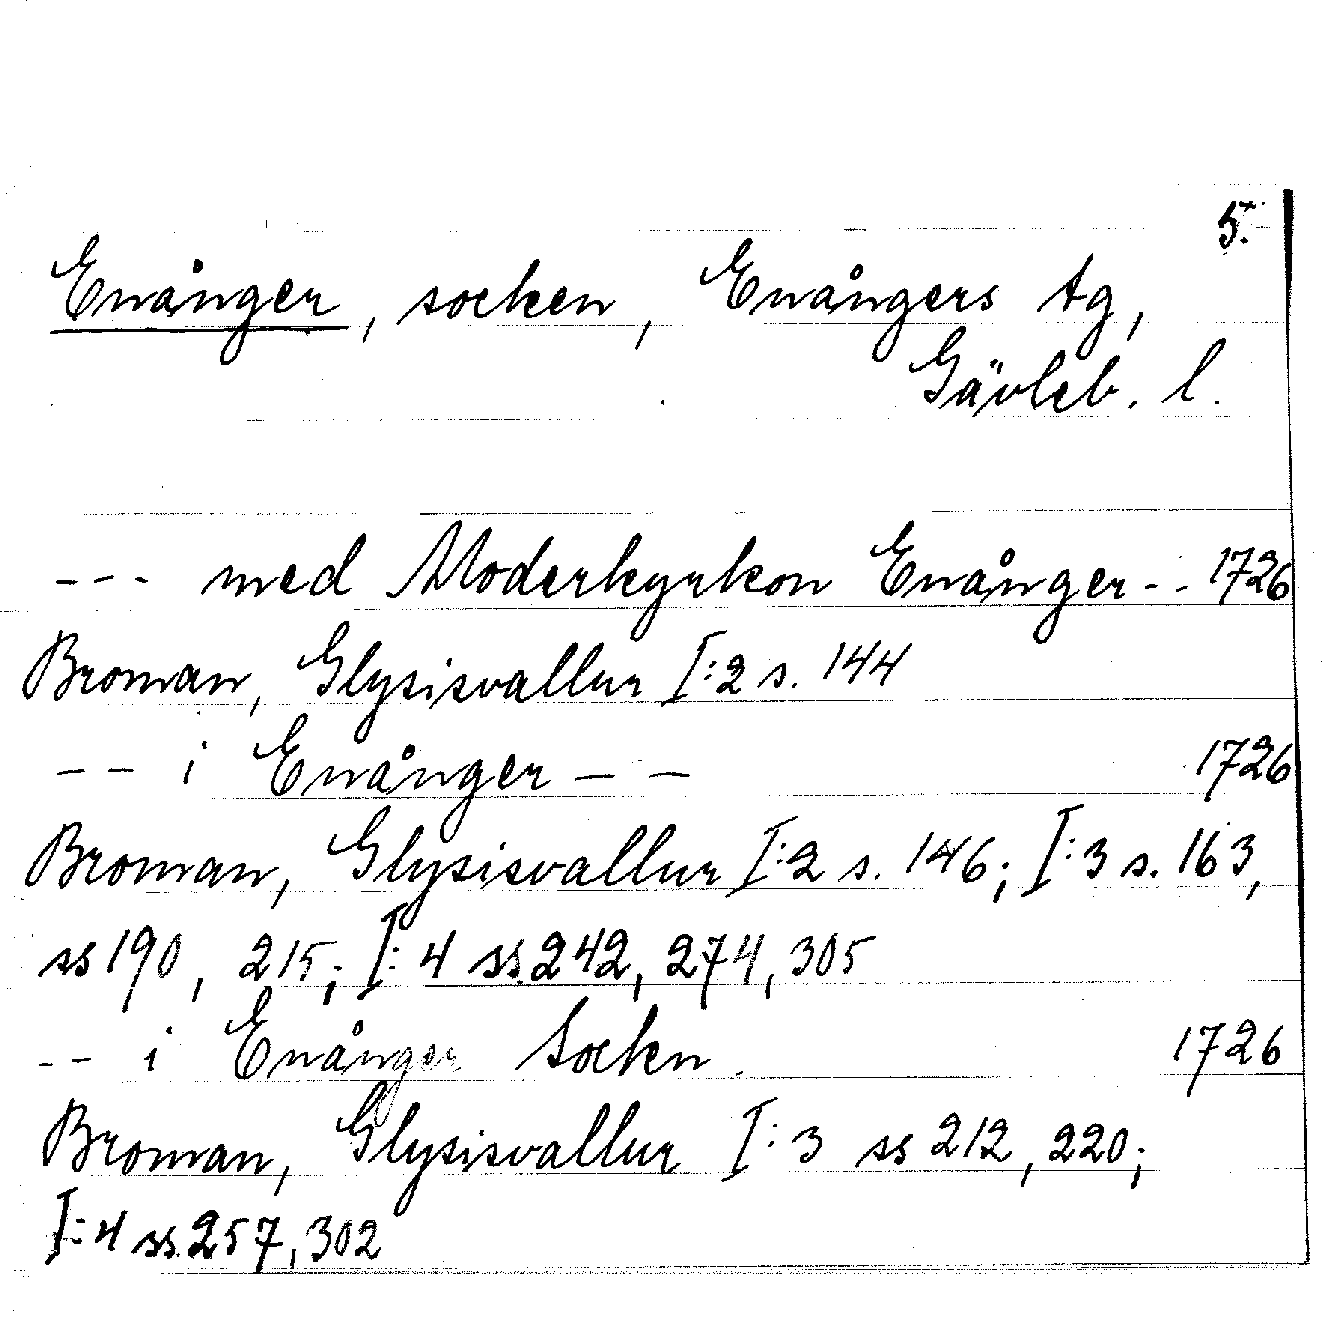 5.
Enånger, socken, Enångers tg,
Gävleb. l.
--- med Moderkyrkon Enånger -- 1726
Broman, Glysisvallur I:2 s. 144
-- i Enånger -- 1726
Broman, Glysisvallur I:2 s. 146; I:3 s. 163,
ss 190, 215; I:4 ss. 242, 274, 305
-- i Enånger Sockn. 1726
Broman, Glysisvallur I:3 ss 212, 220;
I:4 ss. 257, 302